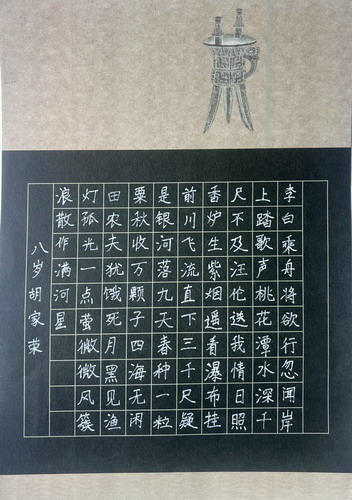 李白乘舟将欲行忽闻岸
上踏歌声桃花潭水深千
尺不及汪伦送我情日照
香炉生紫烟遥看瀑布挂
前川飞流直下三千尺疑
是银河落九天春种一粒
栗秋收万颗子四海无闲
田农夫犹饿死月黑见渔
灯孤光一点萤微微风簇
浪散作满河星
八岁胡家荣